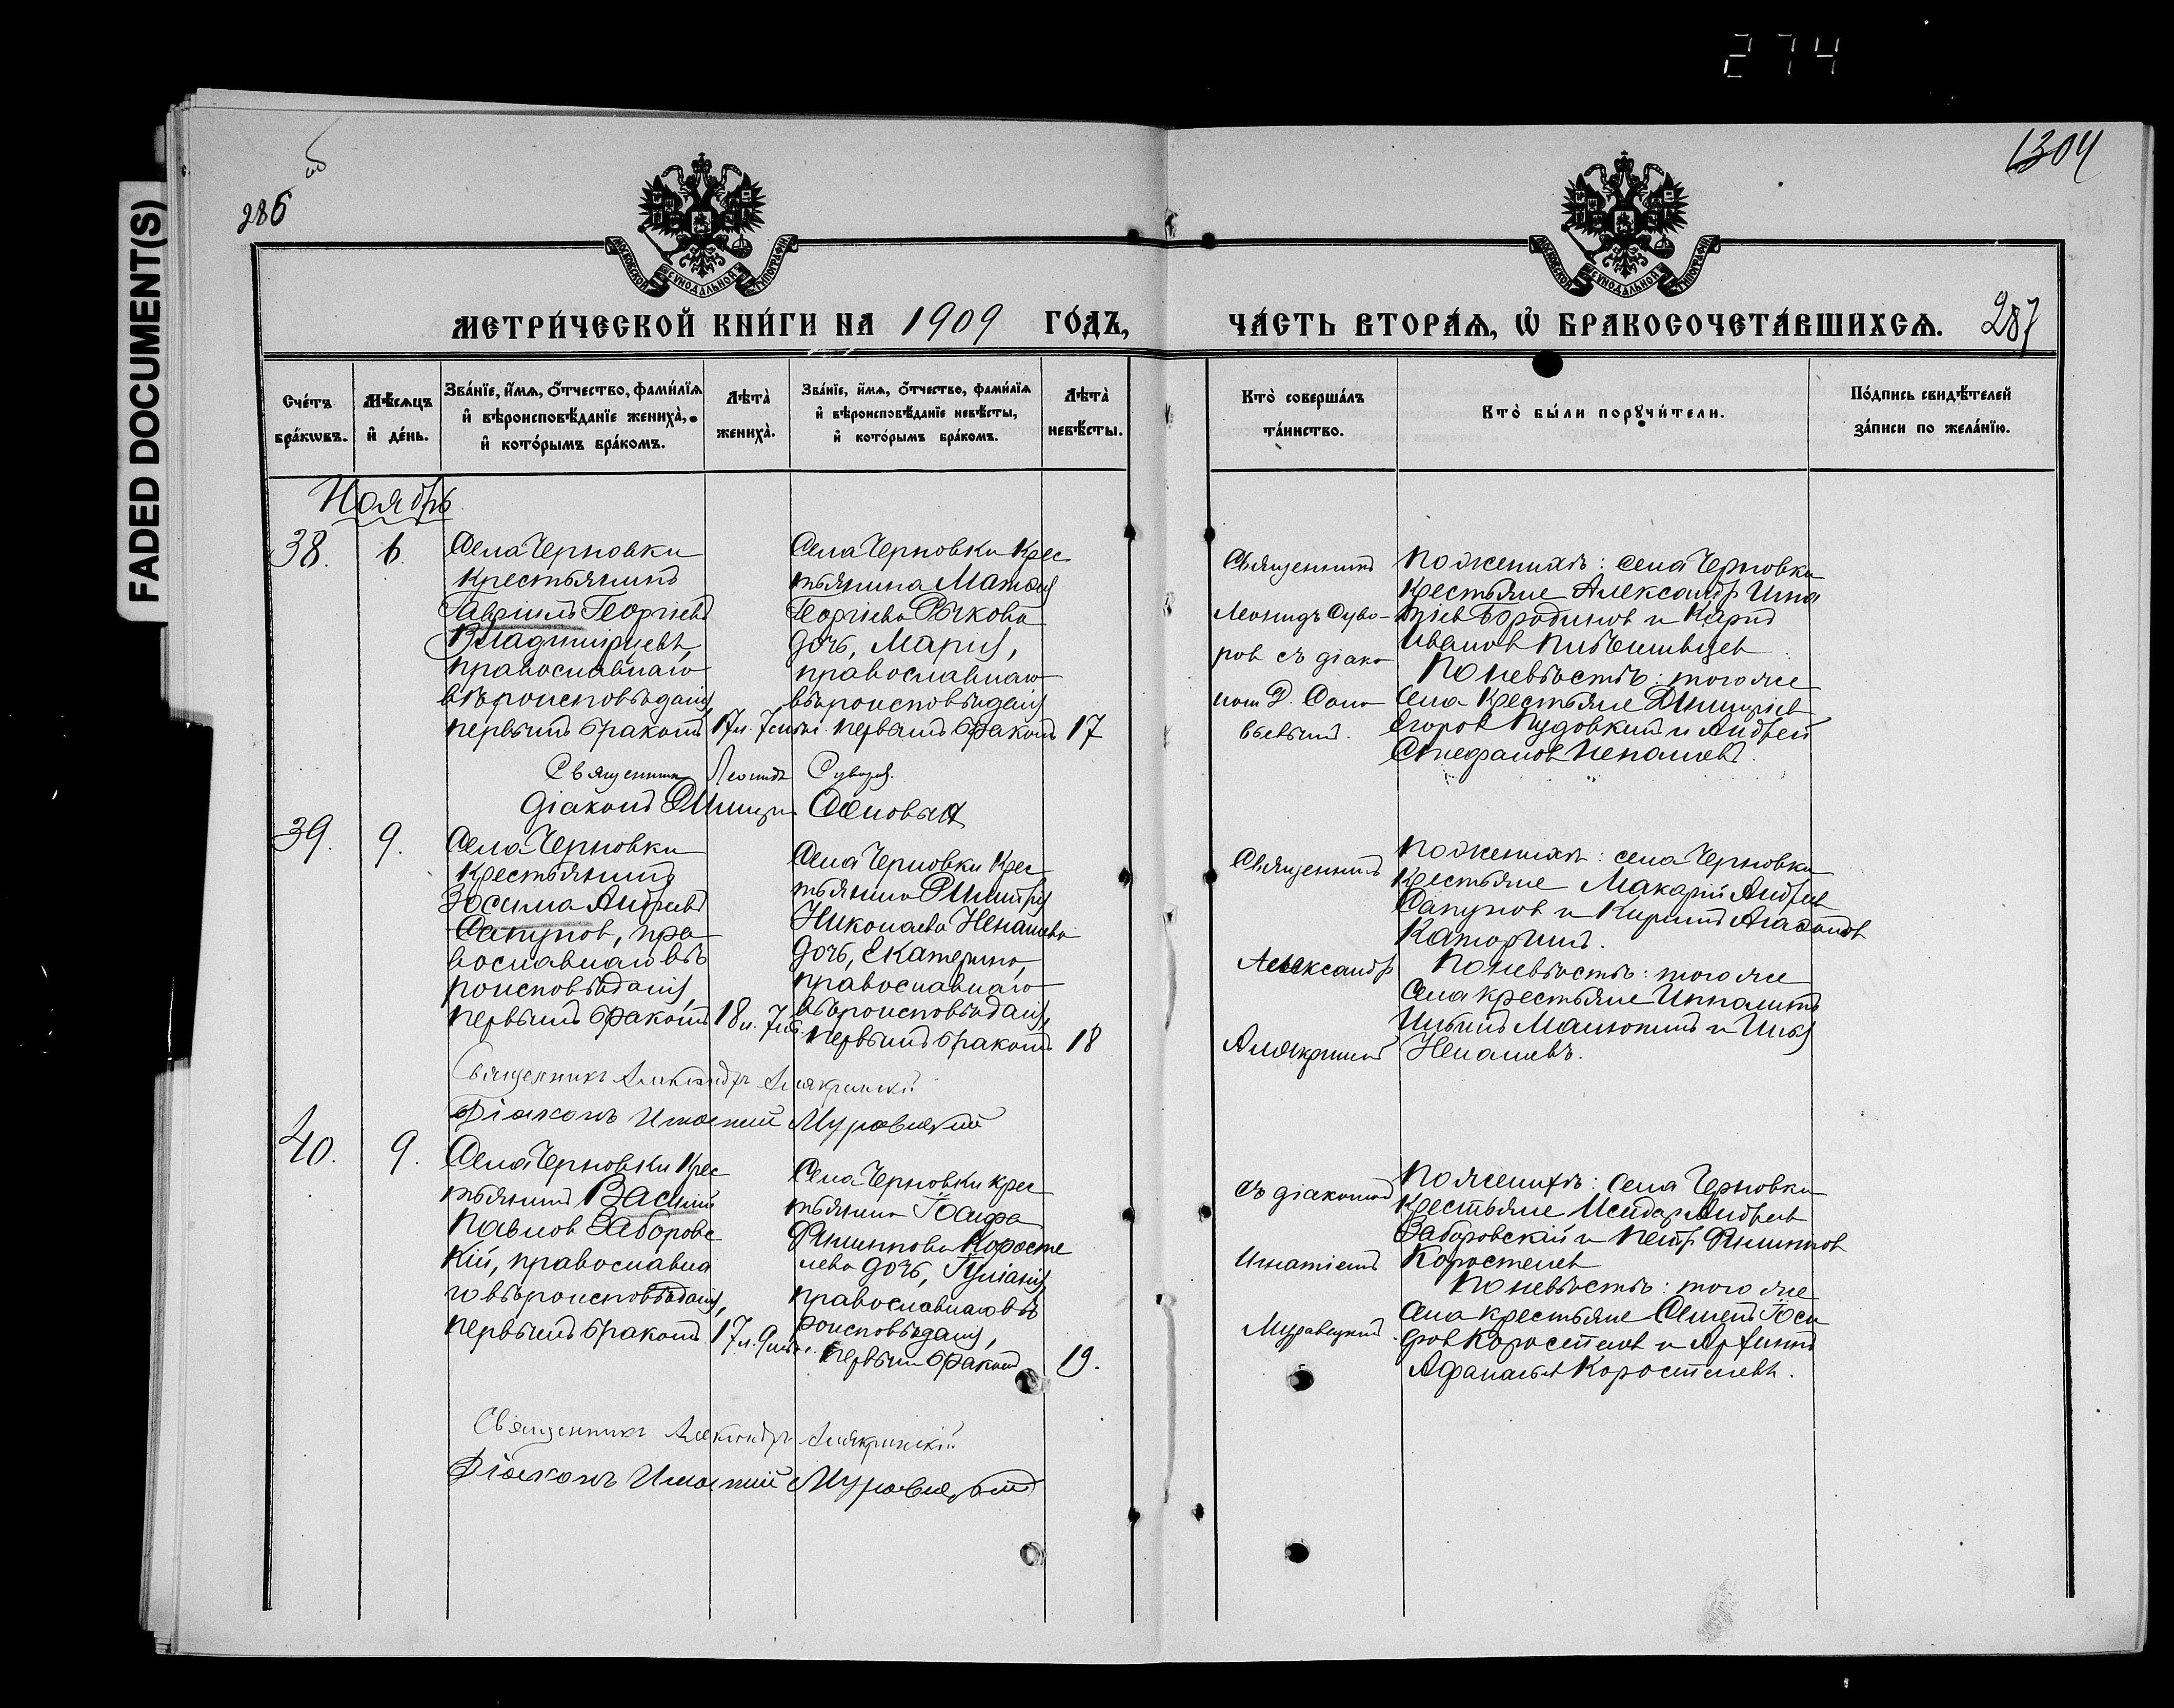 274
FADED DOCUMENT(S)
286
об
1304
МОСКОВСКОЙ СѴНОДАЛЬНОЙ ТИПОГРАФІИ
МОСКОВСКОЙ СѴНОДАЛЬНОЙ ТИПОГРАФІИ
МЕТРИ́ЧЕСКОЙ КНИ́ГИ НА 1909 ГО́ДЪ,
ЧА́СТЬ ВТОРА́Ѧ, Ѡ҆ БРАКОСОЧЕТА́ВШИХСѦ. 287
Сче́тъ
бра́кѡвъ.
Мѣ́сѧцъ
и҆ де́нь.
Зва́нїе, и҆́мѧ, ѻ҆́тчество, фами́лїѧ
и҆ вѣроисповѣ́данїе жениха̀,
и҆ кото́рымъ бра́комъ.
Лѣта̀
жениха̀.
Зва́нїе, и҆́мѧ, ѻ҆́тчество, фами́лїѧ
и҆ вѣроисповѣ́данїе невѣ́сты,
и҆ кото́рымъ бра́комъ.
Лѣта̀
невѣ́сты.
Кто̀ соверша́лъ
та́инство.
Кто̀ бы́ли порꙋчи́тели.
По́дпись свидѣ́телей
за́писи по жела́нїю.
Ноябрь
38.
6.
Села Черновки
крестьянинъ
Гавріилъ Георгіевъ
Владимірцевъ,
православнаго
вѣроисповѣданія,
первымъ бракомъ
17 л. 7 мѣс.
Села Черновки крес
тьянина Матѳея
Георгіева Рычкова
дочь, Марія,
православнаго
вѣроисповѣданія
первымъ бракомъ
17
Священникъ
Леонидъ Суво-
ровъ съ діако
номъ Д. Соло
вьевымъ.
По женихѣ: села Черновки
крестьяне Александръ Игна
тіев Бородинов и Карпъ
Ивановъ
По невѣстѣ: того же
села крестьяне Димитрій
Егоровъ Пудовкинъ и Андрей
Стефановъ Ненашевъ.
Священникъ Леонидъ Суворовъ.
Діаконъ Димитрій Соловьевъ
39.
9.
Села Черновки
крестьянинъ
Зосима Андреевъ
Сапуновъ, пра
вославнаго вѣ
роисповѣданія,
первымъ бракомъ
18 л. 7 мѣс.
Села Черновки крес
тьянина Димитрія
Николаева Ненашева
дочь, Екатерина,
православнаго
вѣроисповѣданія,
первымъ бракомъ
18
Священникъ
Александръ
Алякринскій
По женихѣ: села Черновки
крестьяне Макарій Андреев
Сапуновъ и Кириллъ Агаѳонов
Каторгинъ.
По невѣстѣ: того же
села крестьяне Ипполитъ
Ильинъ Малютинъ и Илья
Ненашевъ.
Священникъ Александръ Алякринскій
Діаконъ Игнатій Муравецкій
40.
9.
Села Черновки крес
тьянинъ Василій
Павлов Заборовс
кій, православна
го вѣроисповѣданія,
первымъ бракомъ
17 л. 9 мѣс.
Села Черновки крес
тьянина Іосифа
Филиппова Коросте
лева дочь, Іуліанія,
православнаго вѣ
роисповѣданія,
первымъ бракомъ
19.
съ діакономъ
Игнатіемъ
Муравецкимъ
По женихѣ: села Черновки
крестьяне Исидоръ Андреев
Заборовскій и Петръ Филиппов
Коростелев
По невѣстѣ: того же
села крестьяне Семенъ Іоси
фов Коростелев и Архиппъ
Афанасьев Коростелевъ.
Священникъ Александръ Алякринскій
Діаконъ Игнатій Муравецкій